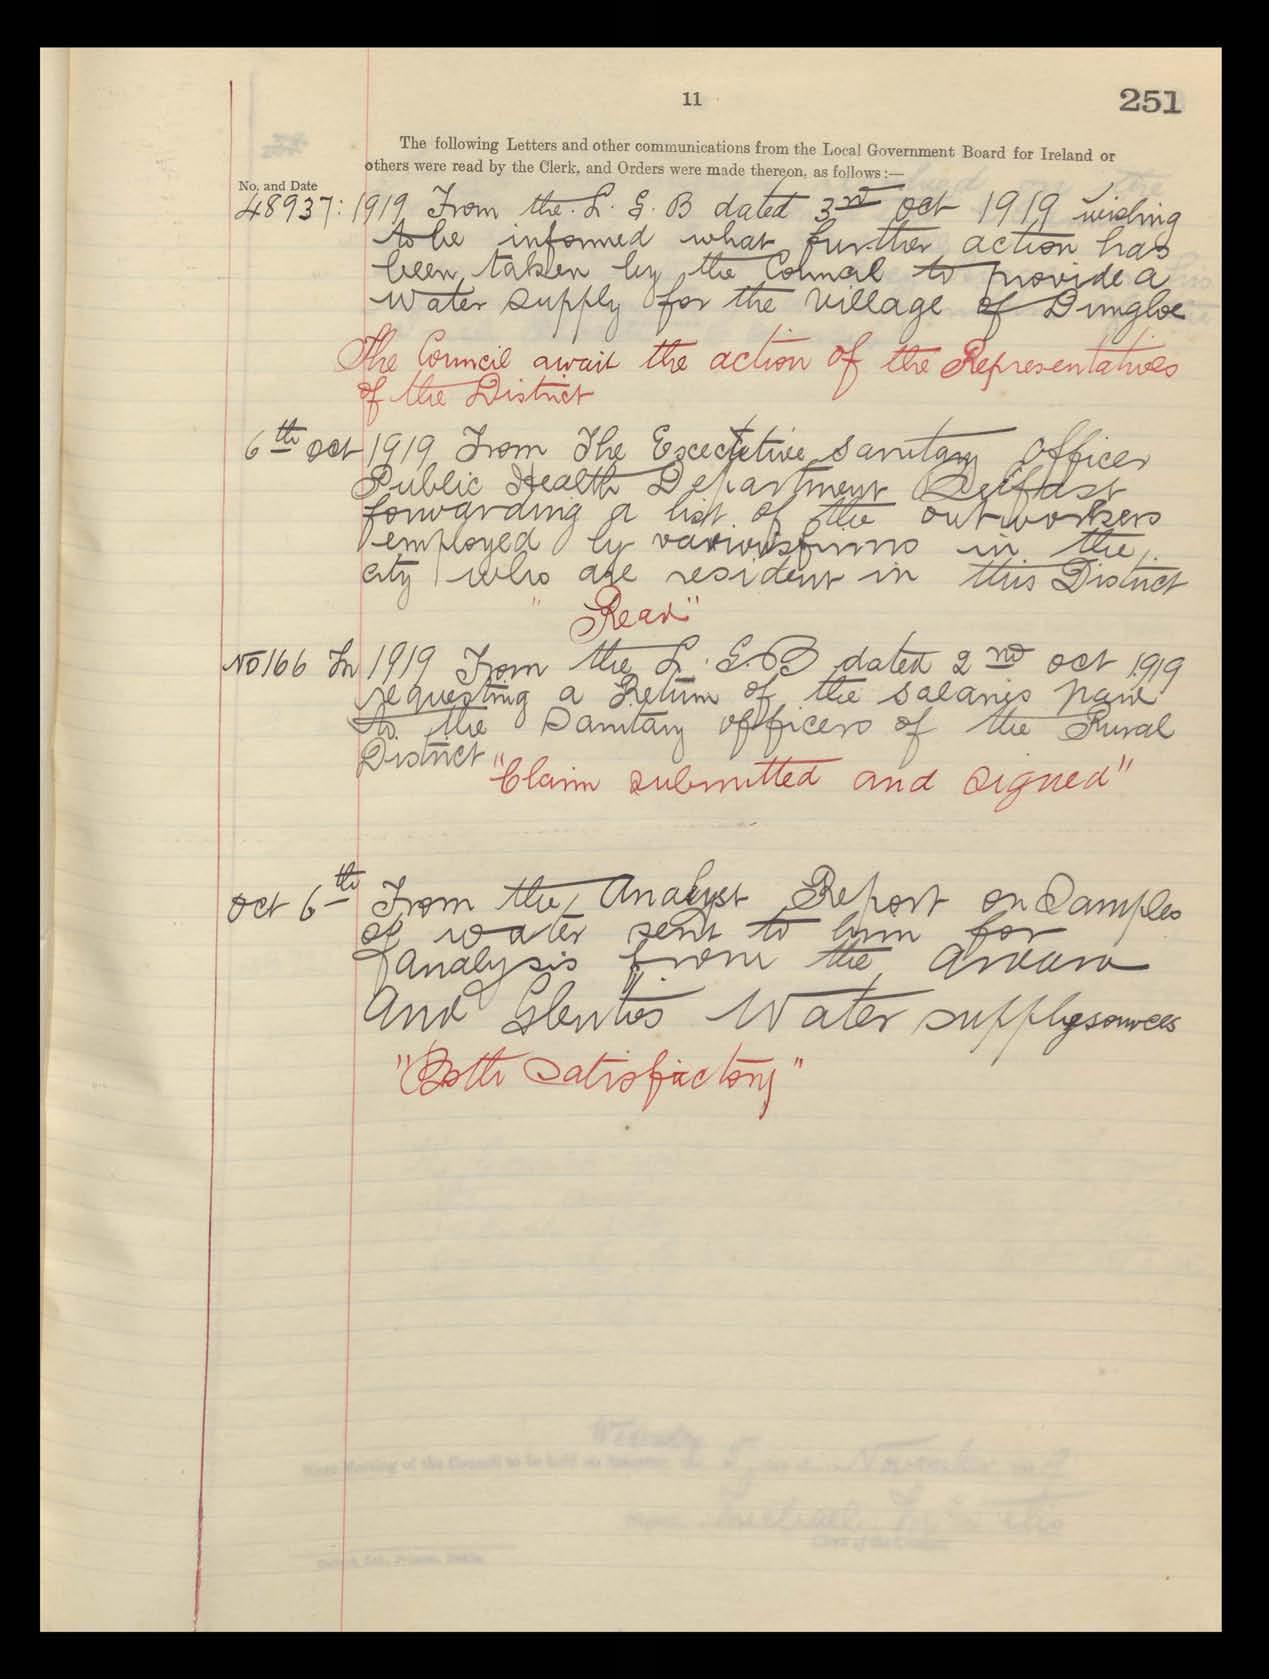 11
251
The following Letters and other communications from the Local Government Board for Ireland or
others were read by the Clerk, and Orders were made thereon, as follows :—
No. and Date
48937: 1919 From the L. G. B dated 3rd Oct 1919 wishing
to be informed what further action has
been taken by the Council to provide a
Water supply for the Village of Dungloe
The Council await the action of the Representatives
of the District
6th Oct 1919 From The Executive Sanitary Officer
Public Health Department Belfast
forwarding a list of the outworkers
employed by various firms in the
city who are resident in this District
"Read"
No 166 M 1919 From the L. G. B dated 2nd Oct 1919
requesting a Return of the salaries paid
to the Sanitary officers of the Rural
District
"Claim submitted and signed"
Oct 6th From the Analyst Report on Samples
of water sent to him for
analysis from the Ardara
and Glenties Water supply sources
"Both Satisfactory"